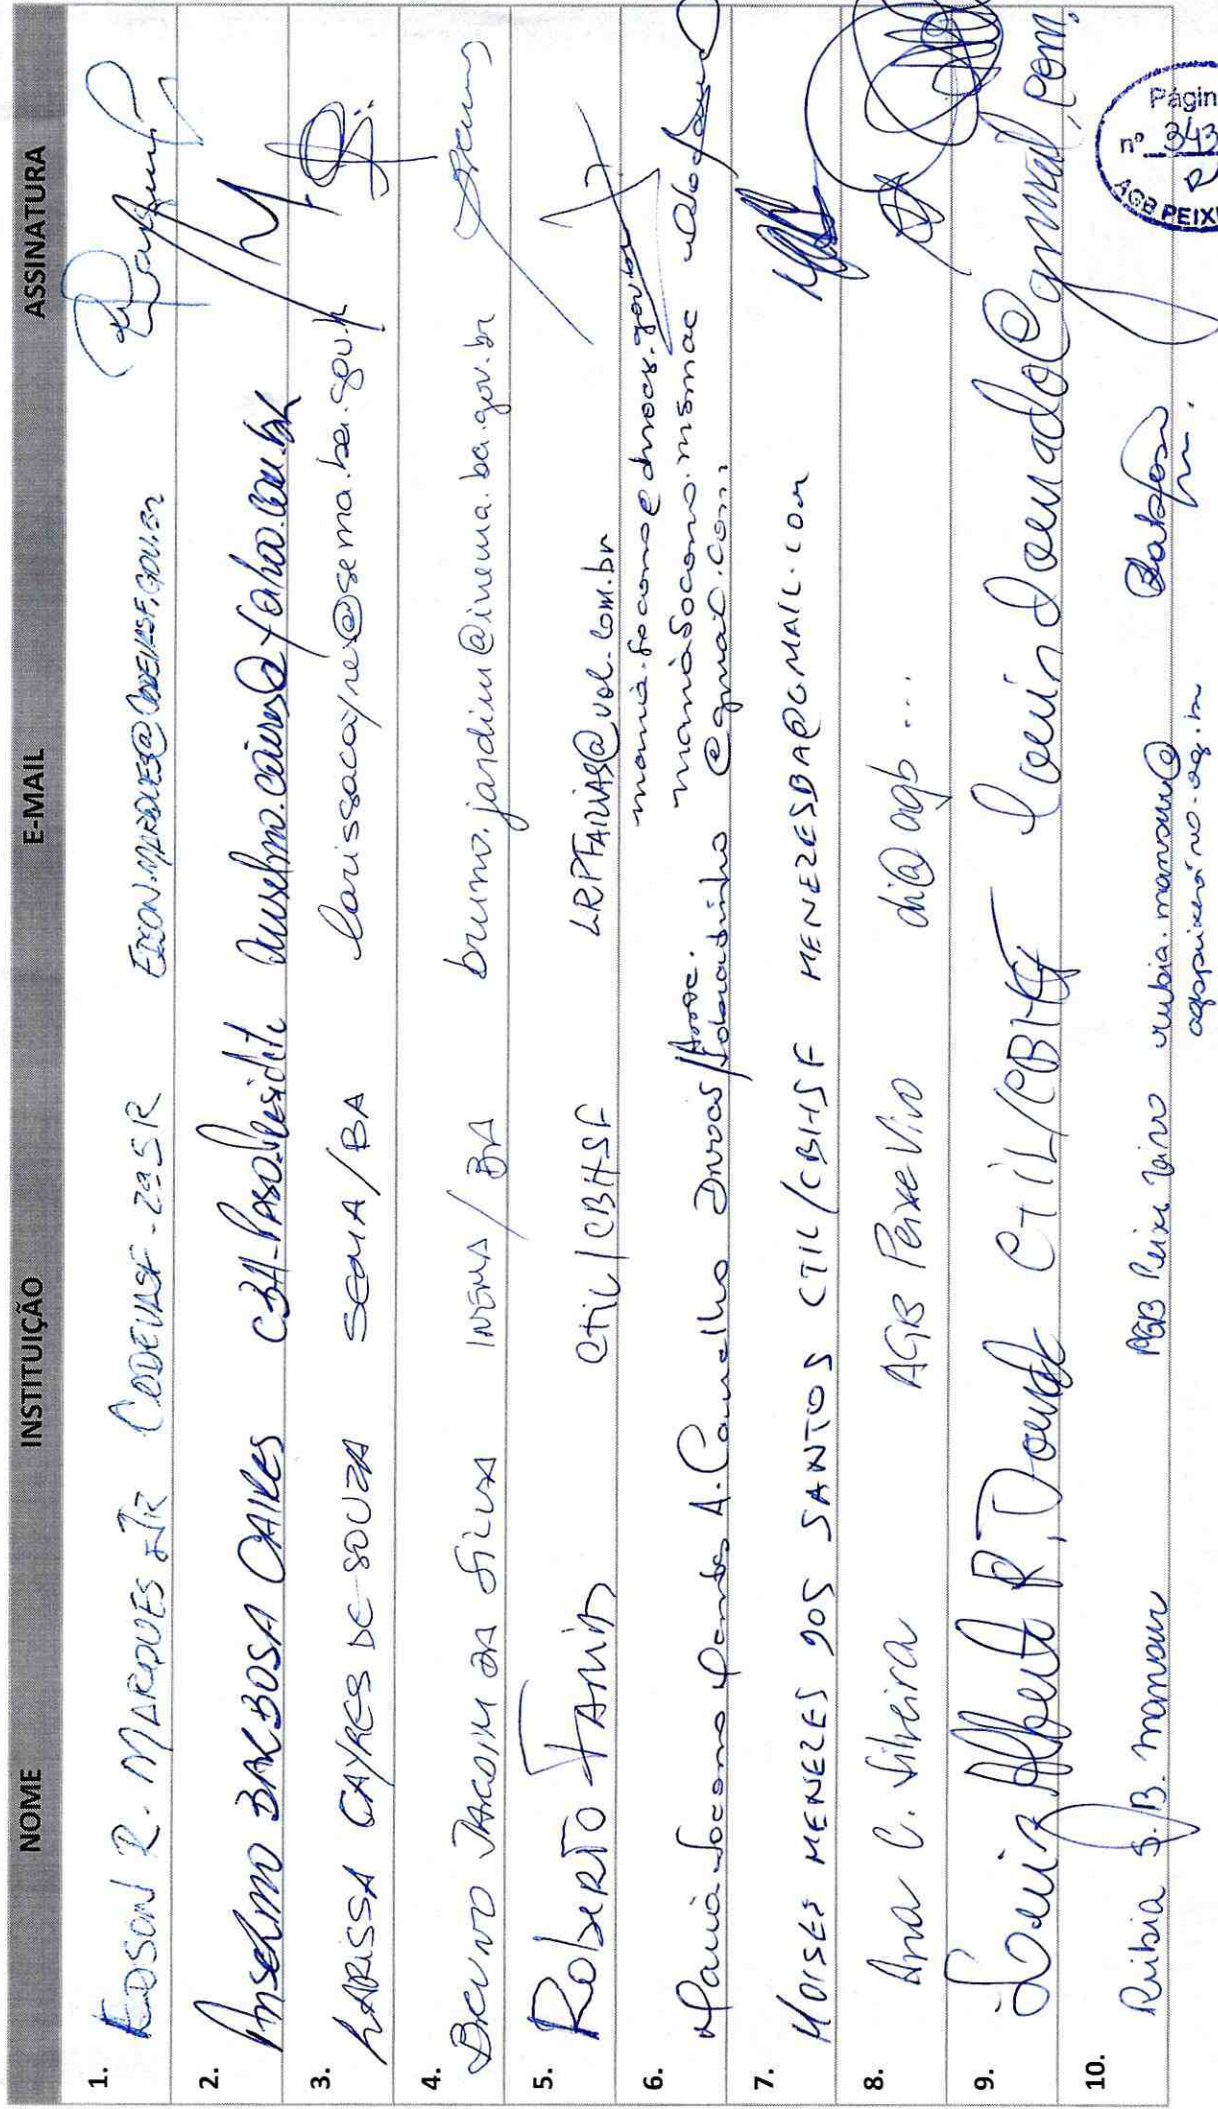 NOME INSTITUIÇÃO E-MAIL ASSINATURA
1. EDSON R. MARQUES JR CODEVASF-2ªSR EDSON.MARQUES@CODEVASF.GOV.BR
2. Anselmo BARBOSA CAIRES anselmo.caires@yahoo.com.br
3. LARISSA CAYRES DE SOUZA SEMA/BA larissacayres@sema.ba.gov.br
4. BRUNO JARDIM DA SILVA INEMA/BA bruno.jardim@inema.ba.gov.br
5. ROBERTO FARIAS CTIL/CBHSF LRPFARIAS@uol.com.br
6. Maria Socorro Mendes A. Carvalho
@gmail.com
7. MOISES MENEZES DOS SANTOS CTIL/CBHSF MENEZESBA@GMAIL.COM
8. Ana C. Silveira AGB Peixe Vivo di@agb...
9. Luiz Alberto R. Dourado CTIL/CBHSF luizdourado@gmail.com
10. Rubia S.B. Mansur AGB Peixe Vivo rubia.mansur@
agbpeixevivo.org.br
Págin
nº 343
AGB PEIX